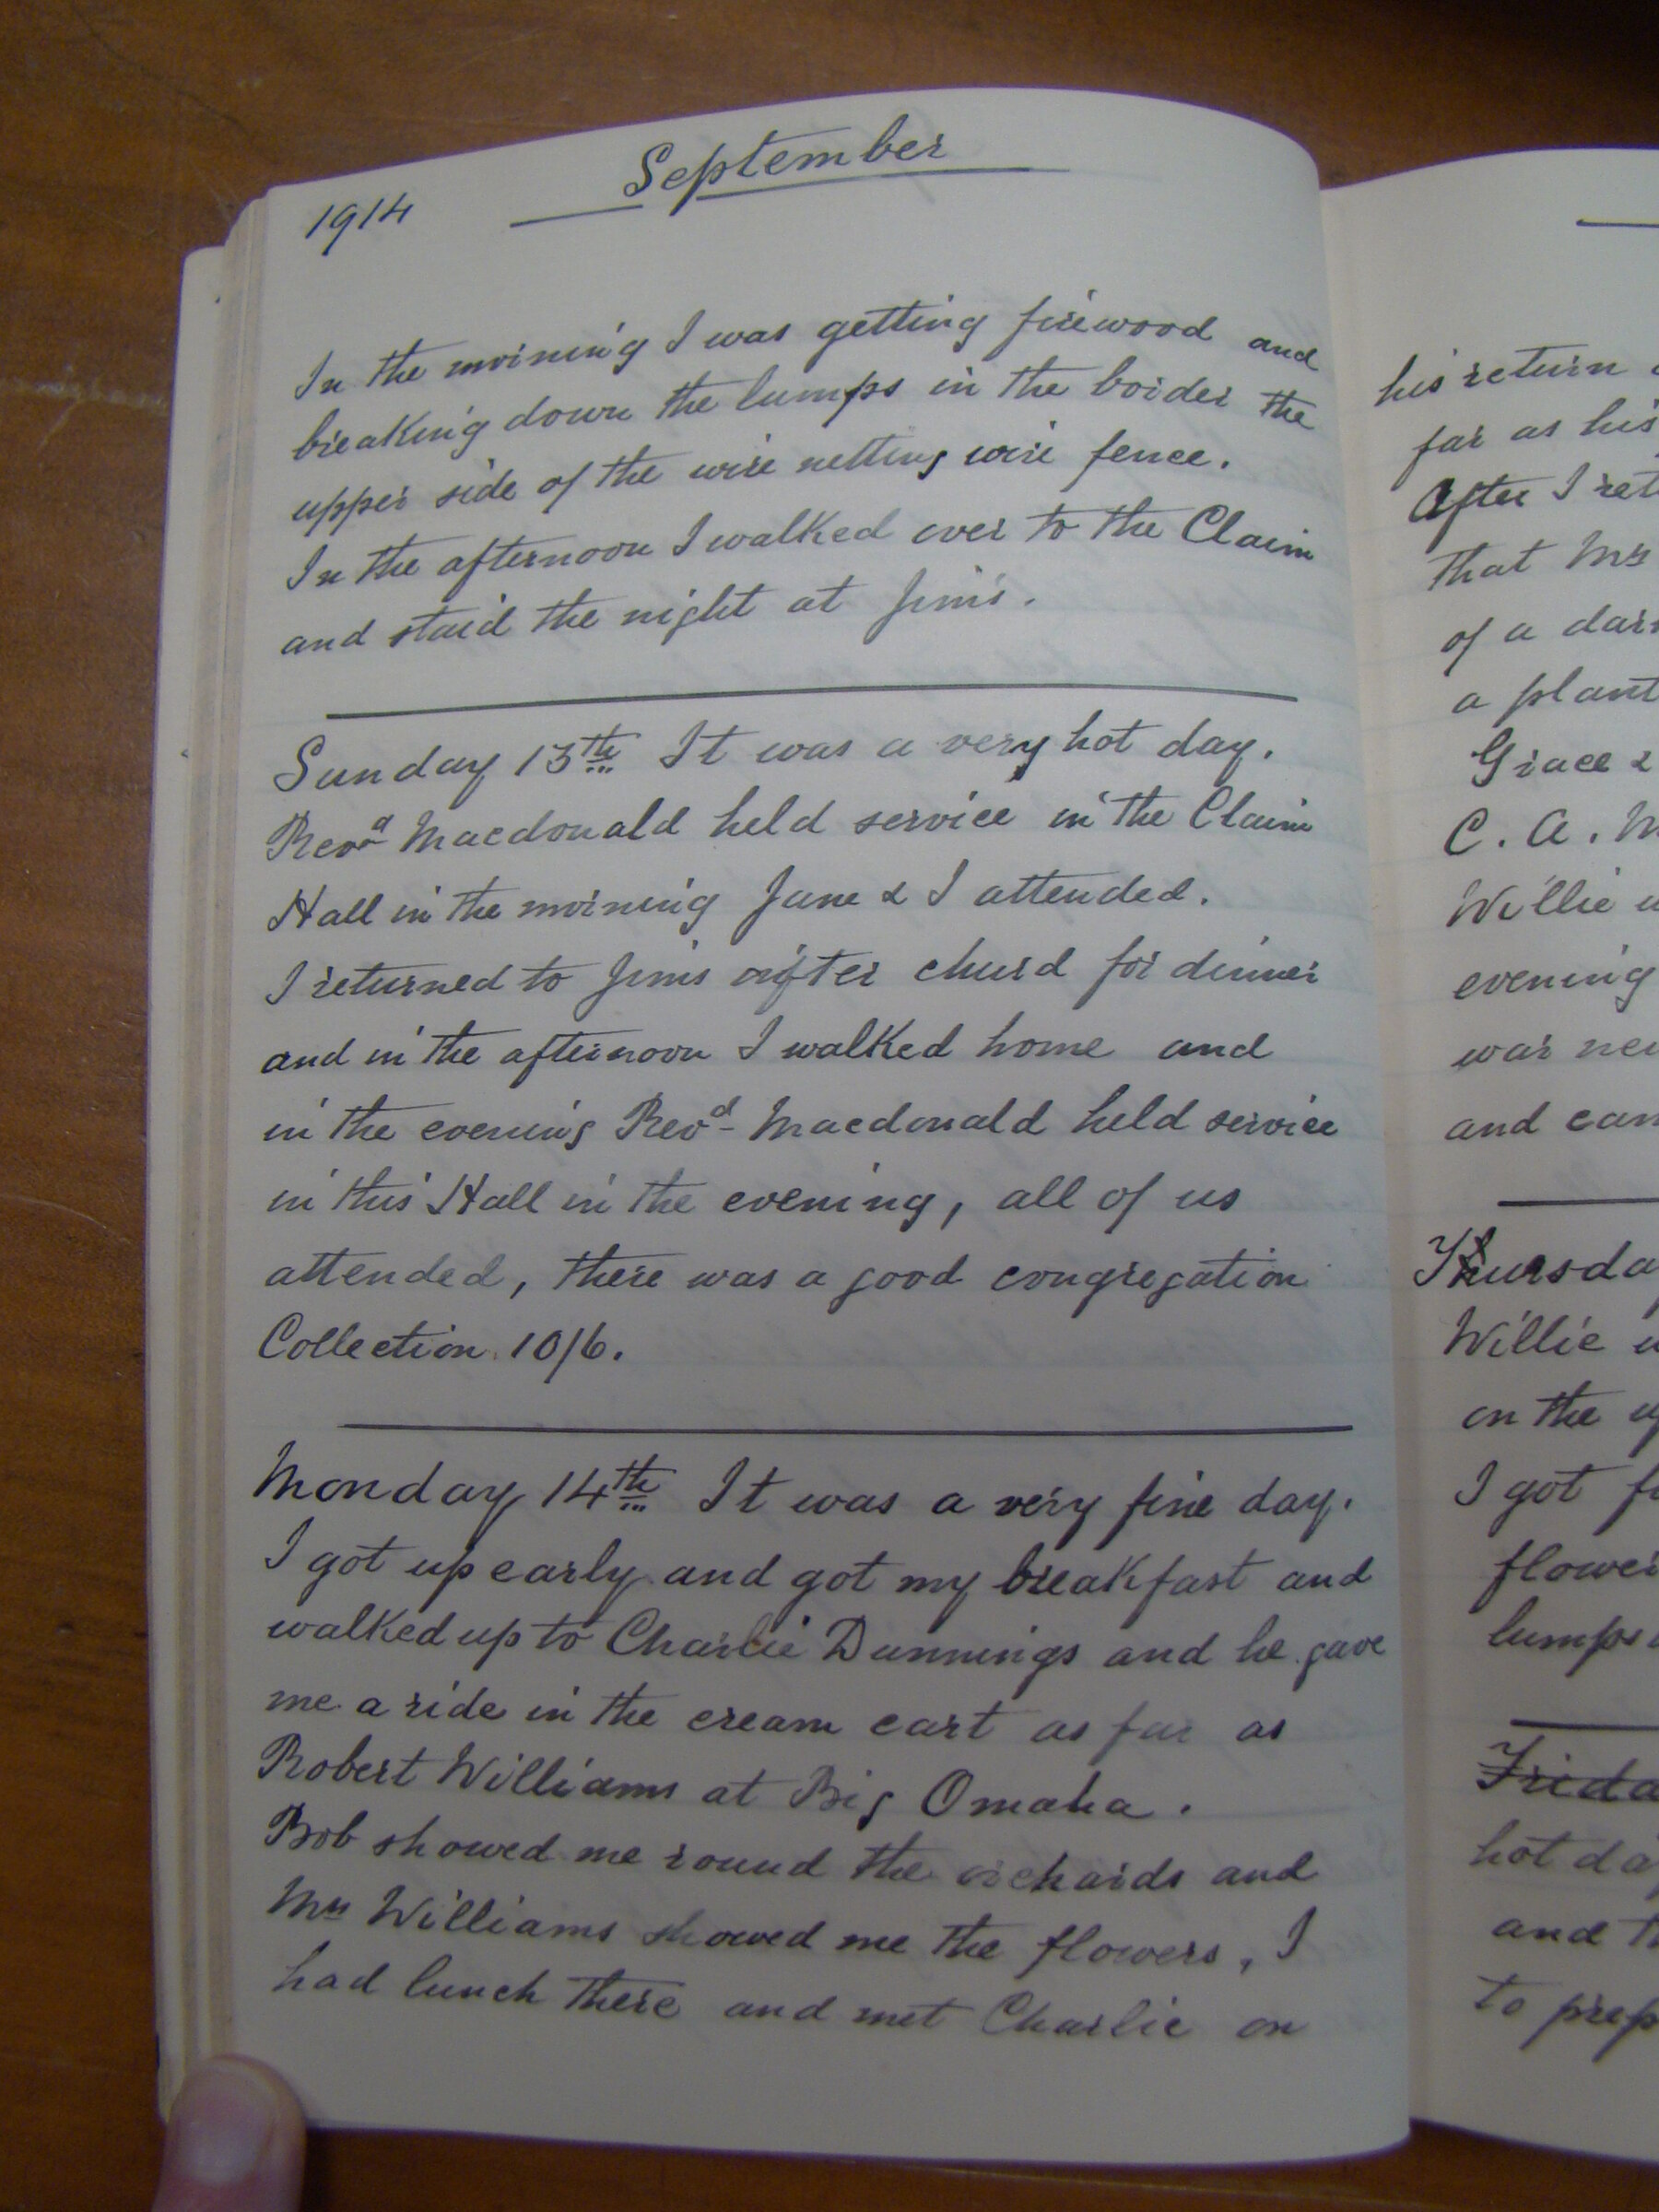 1914
September
In the morning I was getting firewood and
breaking down the lumps in the border the
upper side of the wire netting wire fence.
In the afternoon I walked over to the Claim
and staid the night at Jim's.
Sunday 13th It was a very hot day.
Revd Macdonald held service in the Claim
Hall in the morning Jane & I attended.
I returned to Jims after churd for dinner
and in the afternoon I walked home and
in the evening Revd Macdonald held service
in this Hall in the evening, all of us
attended, there was a good congregation
Collection 10/6.
Monday 14th It was a very fine day.
I got up early and got my breakfast and
walked up to Charlie Dunnings and he gave
me a ride in the cream cart as far as
Robert Williams at Big Omaha.
Bob showed me round the orchards and
Mrs Williams showed me the flowers, I
had lunch there and met Charlie on
his return
far as his
After I ret
that Mrs
of a
a plant
Grace &
C. A. M
Willie
evening
was
and
Thursda
Willie
on the
I got
flower
lumps
Frida
hot da
and
to prep